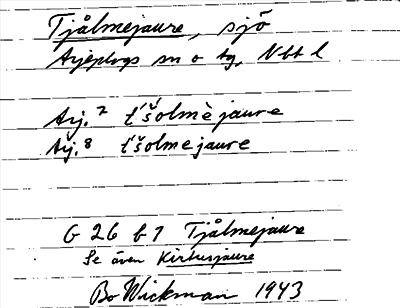 Tjålmejaure, sjö
Arjeplogs sn o tg, Nbt l.
Arj. 7 t'šolmèjaure
Arj. 8 t'šolmejaure
G 26 b 7 Tjålmejaure
Se även Kirkusjaure
Bo Wickman 1943